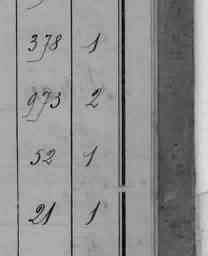 378 1
973 2
52 1
21 1